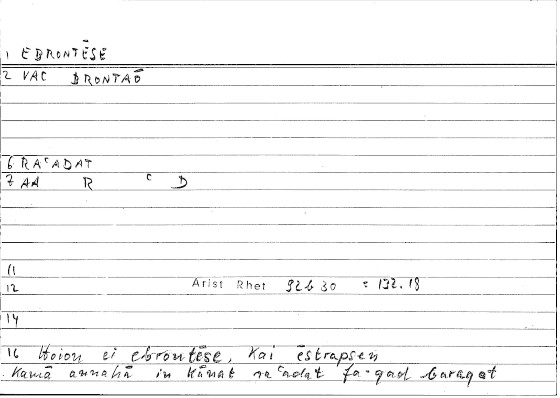 1 EBRONTĒSE
2 VAC BRONTAŌ
6 RAʿADAT
7 AA R ʿ D
11
12 Arist Rhet 92b30 = 132.18
14
16 Hoion ei ebrontēse, kai ēstrapsen
kamā annahā in kānat raʿadat fa-qad baraqat